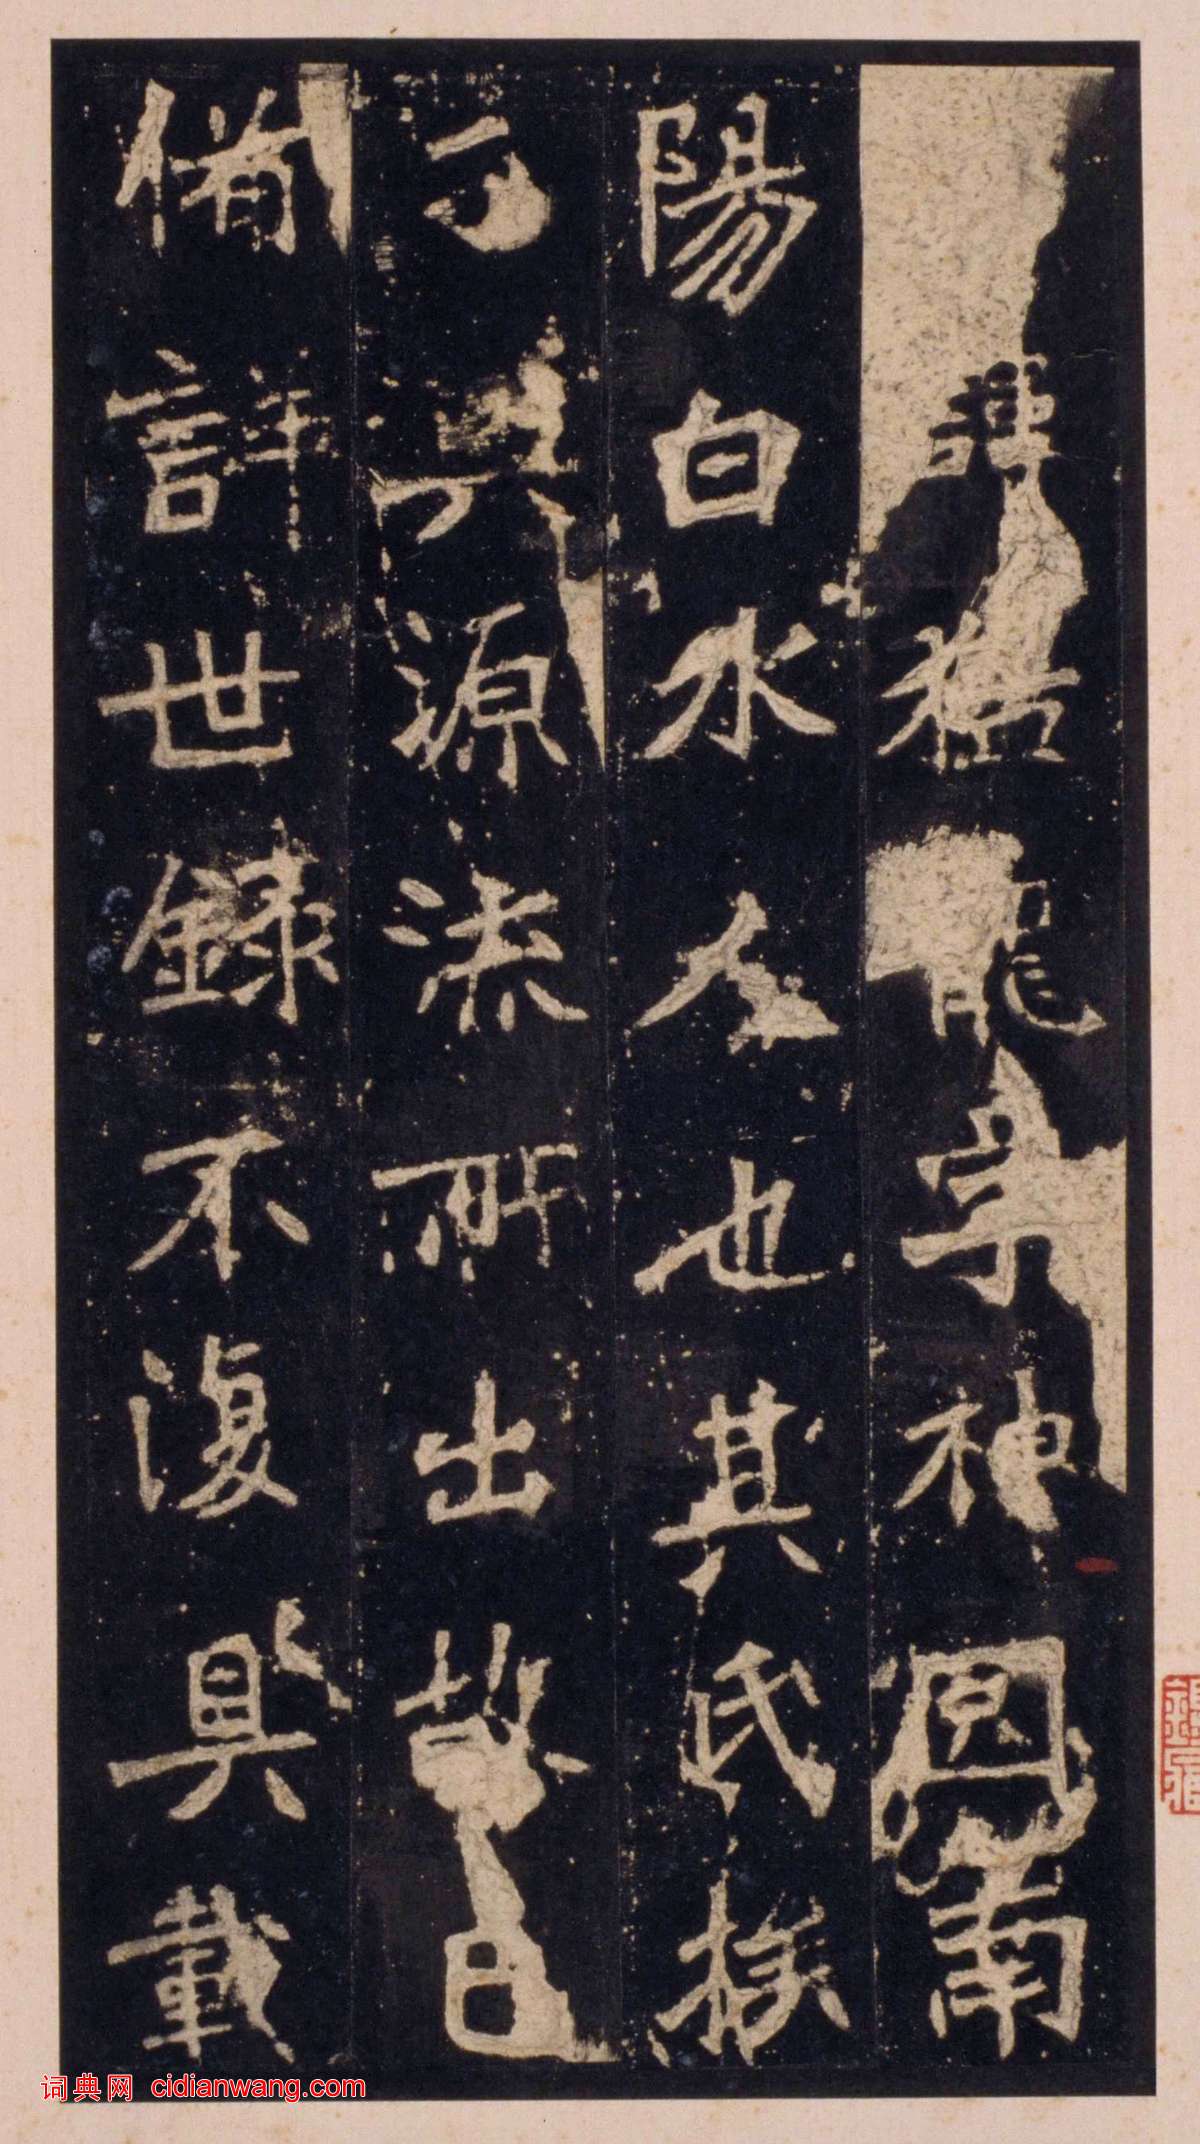 諱猛龍字神囧南
陽白水人也其氏族
源流所出故
備詳世錄不復具載
词典网 cidianwang.com